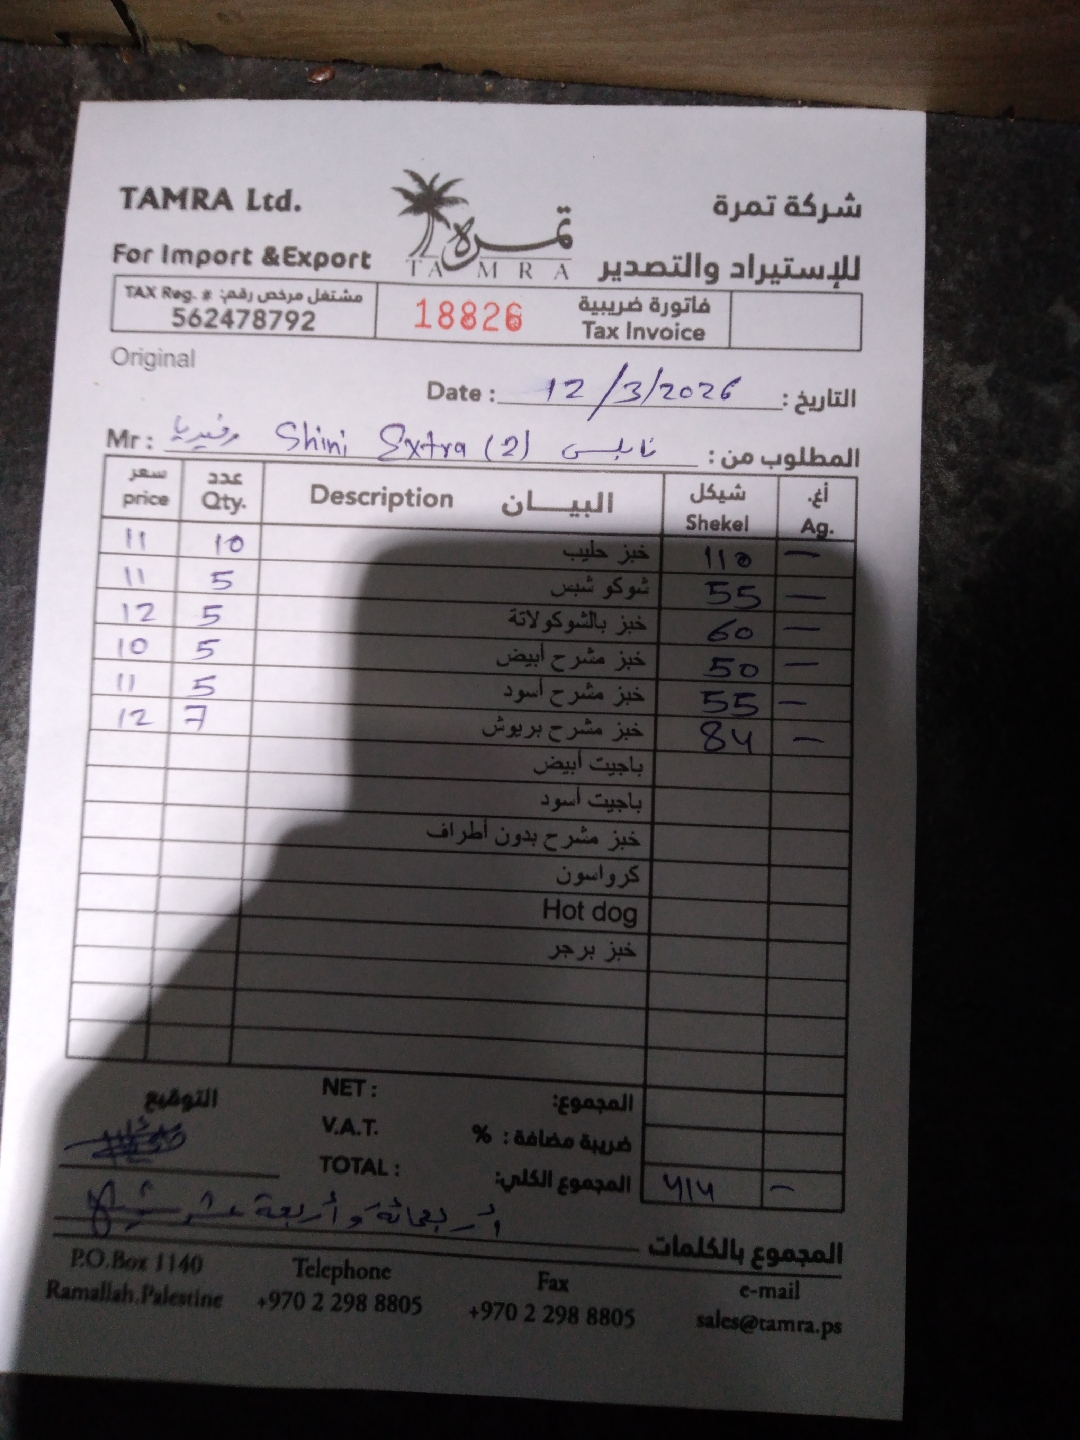 TAMRA Ltd.
تمرة
TAMRA
شركة تمرة
For Import &Export
للإستيراد والتصدير
TAX Reg. # مشتغل مرخص رقم:
562478792
18826
فاتورة ضريبية
Tax Invoice
Original
Date : 12/3/2026 التاريخ :
Mr : رفيديا Shini Extra (2) نابلس المطلوب من :
سعر price عدد Qty. Description البيـــان شيكل Shekel أغ. Ag.
11 10 خبز حليب 110 —
11 5 شوكو شبس 55 —
12 5 خبز بالشوكولاتة 60 —
10 5 خبز مشرح أبيض 50 —
11 5 خبز مشرح أسود 55 —
12 7 خبز مشرح بريوش 84 —
باجيت أبيض
باجيت أسود
خبز مشرح بدون أطراف
كرواسون
Hot dog
خبز برجر
التوقيع NET : المجموع:
V.A.T. % ضريبة مضافة :
TOTAL : المجموع الكلي: 414 —
أربعمائة وأربعة عشر شيكل
المجموع بالكلمات
P.O.Box 1140 Telephone Fax e-mail
Ramallah.Palestine +970 2 298 8805 +970 2 298 8805 sales@tamra.ps